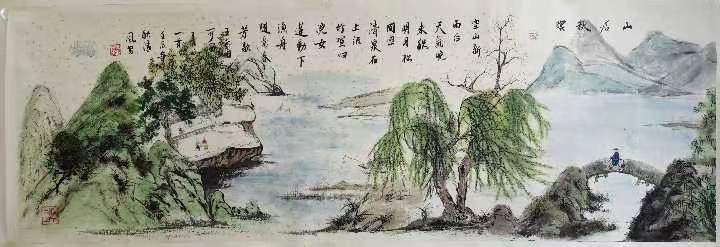 山居秋暝
空山新
雨后
天气晚
来秋
明月松
间照
清泉石
上流
竹喧归
浣女
莲动下
渔舟
随意春
芳歇
王孙自
可留